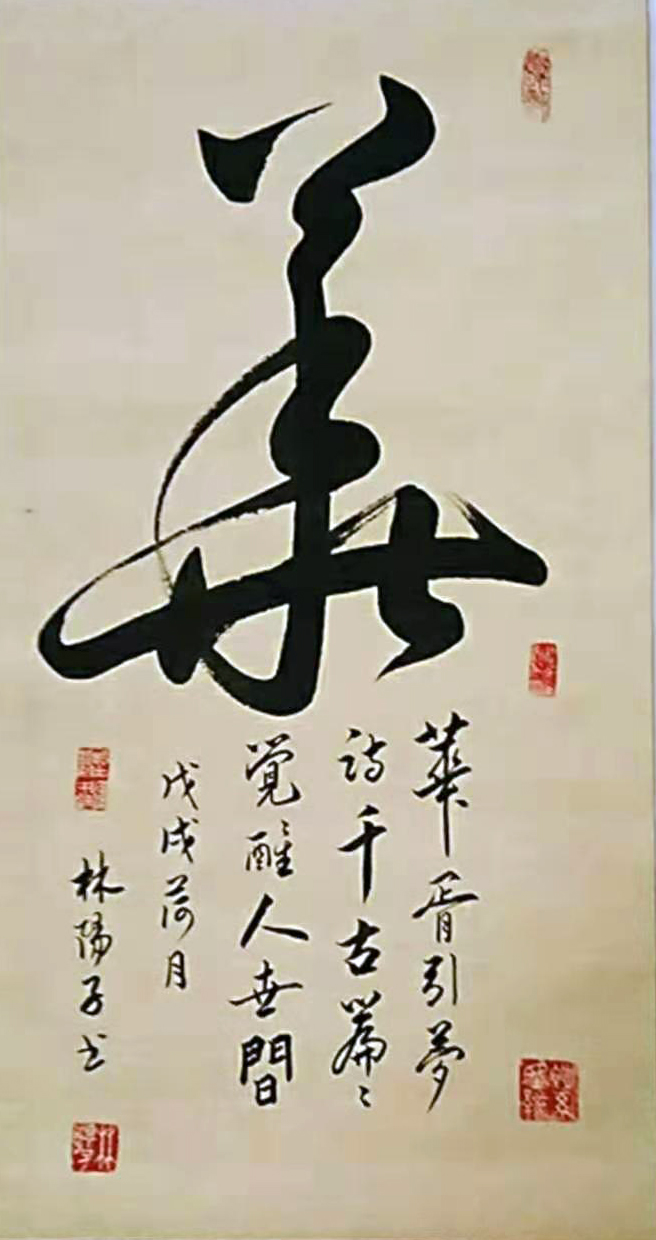 華
華胥引夢
詩千古篇〻
覺醒人世間
戊戌荷月
林陽子书